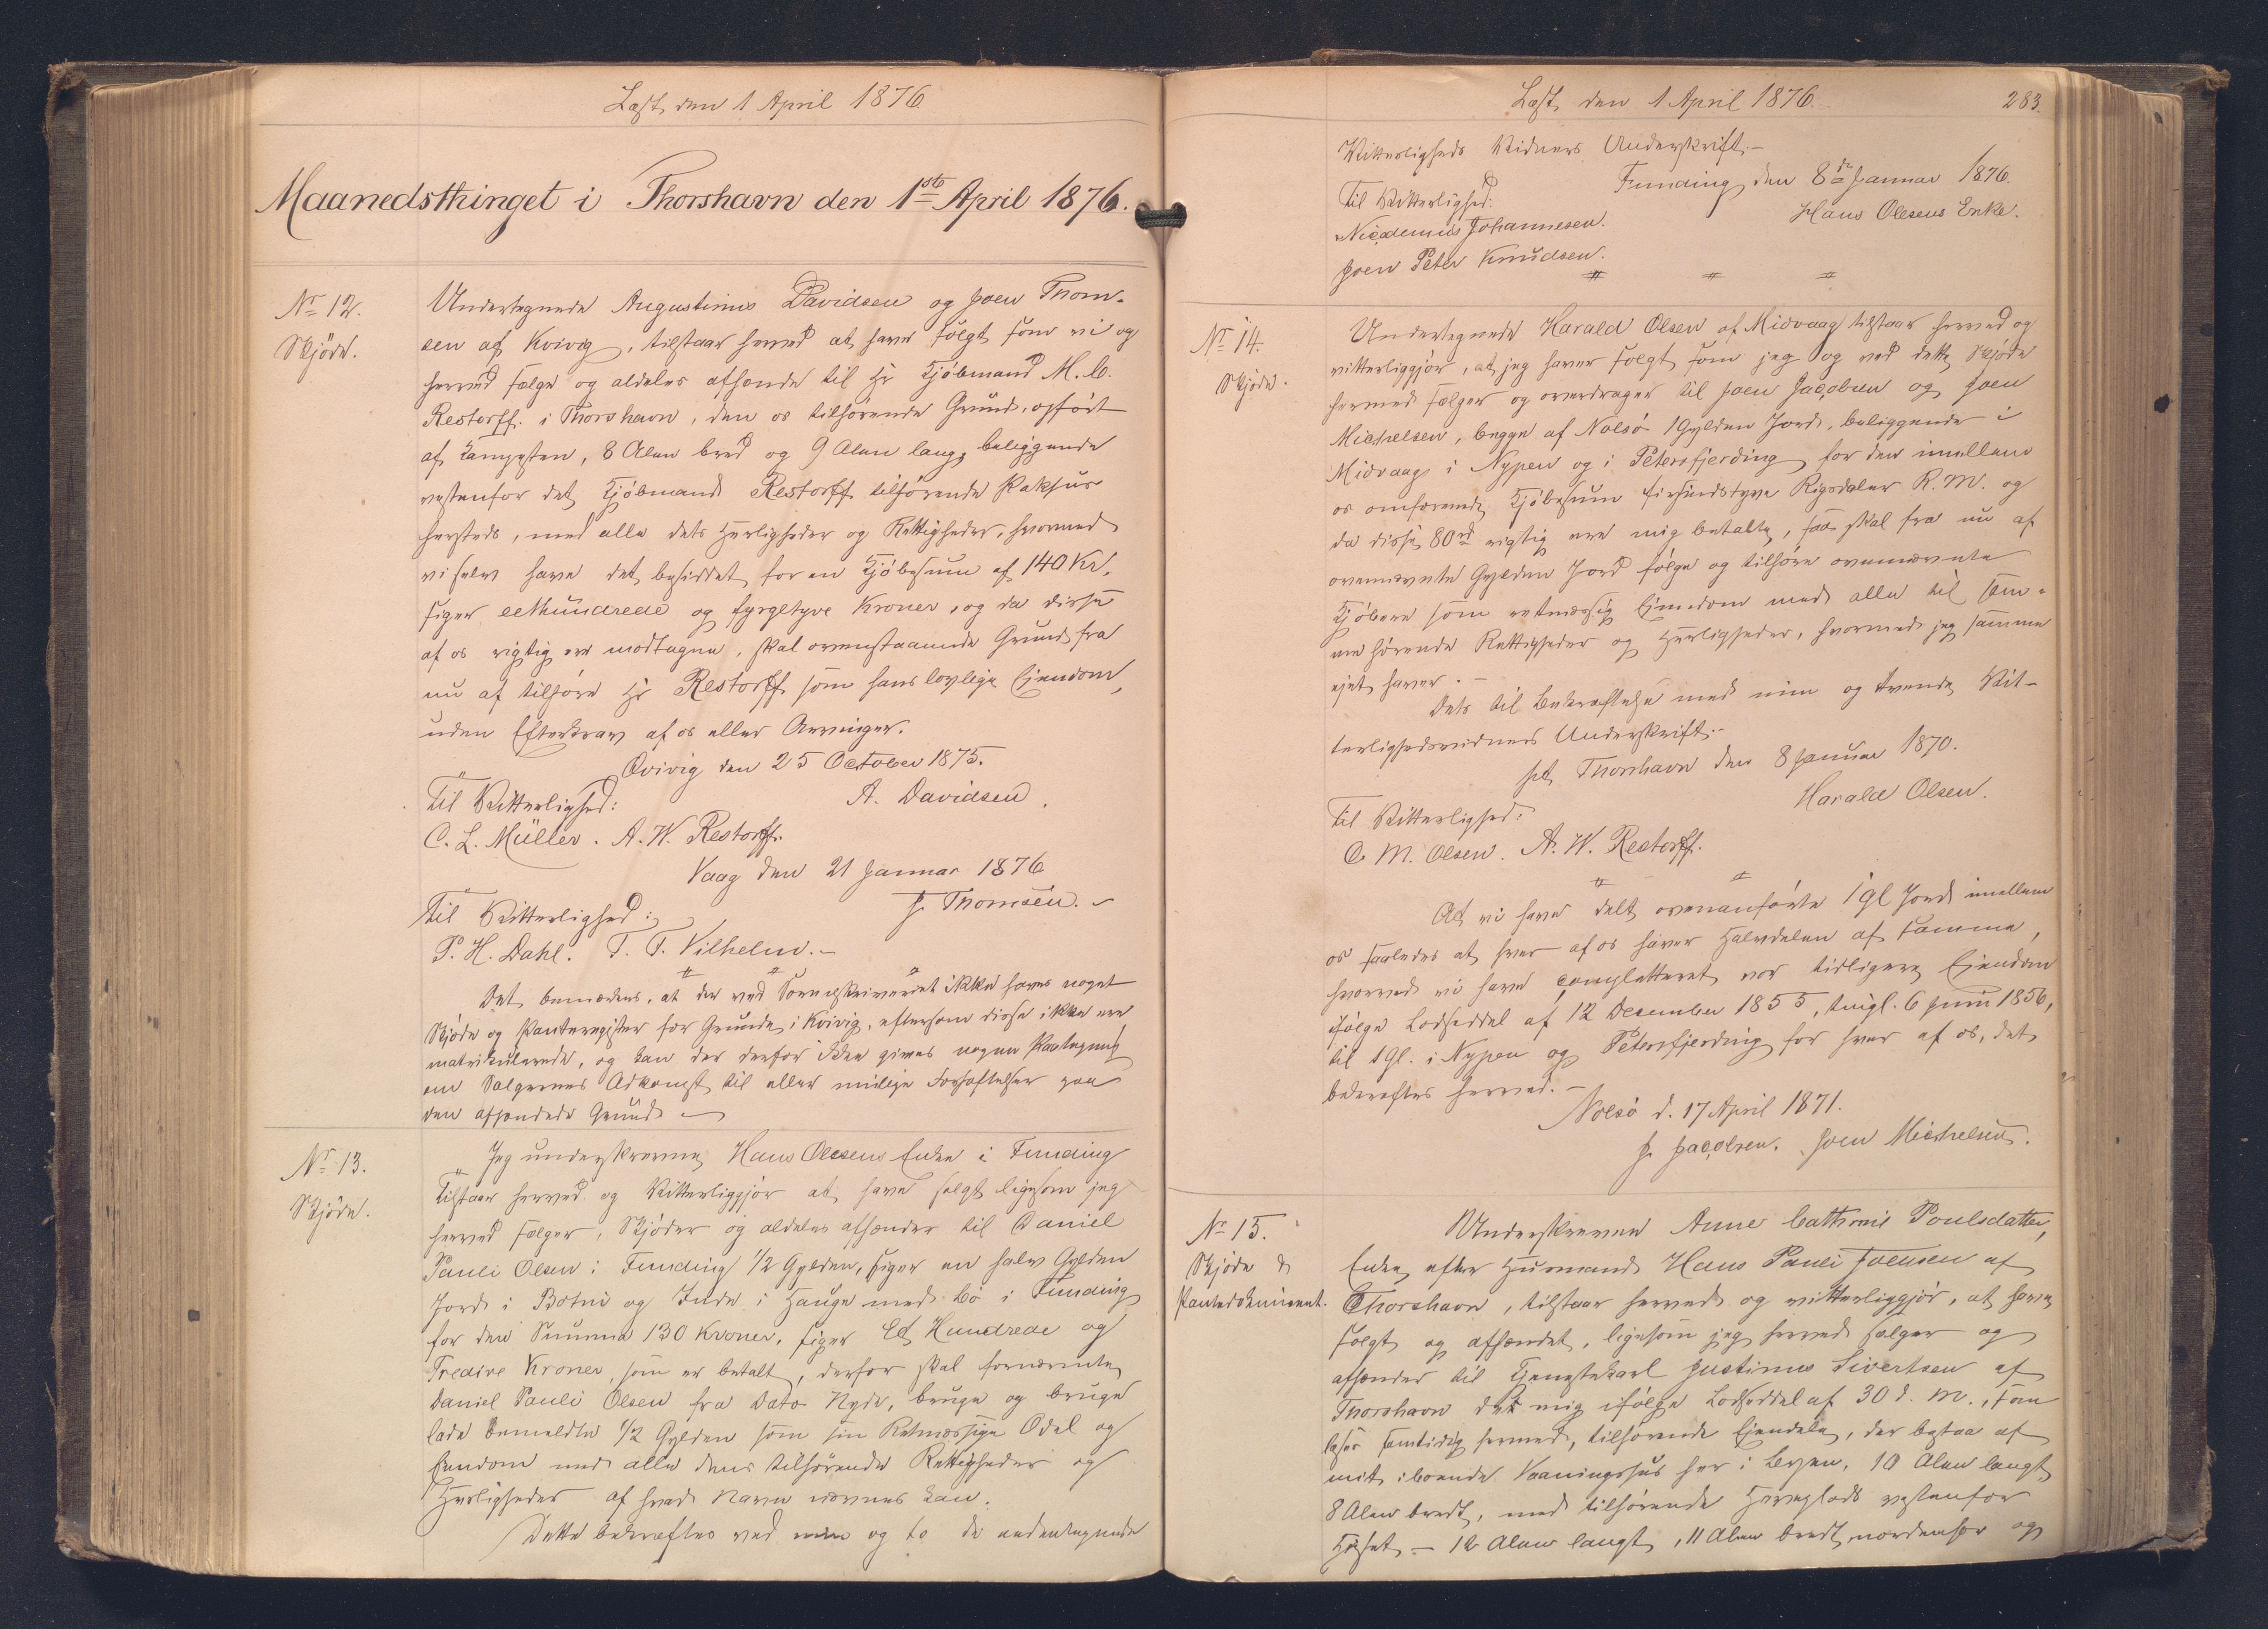 Læst den 1 April 1876.
Maanedsthinget i Thorshavn den 1ste April 1876.
No 12.
Skjöde.
Undertegnede Augustinus Davidsen og Joen Thom-
sen af Kvivig, tilstaar herved at have solgt som vi og
herved sælge og aldeles afhænde til Hr Kjöbmand M. C.
Restorff i Thorshavn, den os tilhörende Grund, opfört
af Kampesten, 8 Alen bred og 9 Alen lang, beliggende
vestenfor det Kjöbmand Restorff tilhörende Pakhus
hersteds, med alle dets Herligheder og Rettigheder, hvormed
vi selv have det besiddet for en Kjöbesum af 140 Kr.
siger eethundrede og fyrgetyve Kroner, og da disse
af os rigtig ere modtagne, skal ovenstaaende Grund fra
nu af tilhöre Hr Restorff som hans lovlige Ejendom,
uden Efterkrav af os eller Arvinger.
Qvivig den 25 October 1875.
Til Vitterlighed: A. Davidsen.
C. L. Müller. A. W. Restorff.
Vaag den 21 Januar 1876
Til Vitterlighed: J. Thomsen.
P. H. Dahl. T. T. Vilhelm.
Det bemærkes, at der ved Sorenskriveriet ikke haves noget
Skjöde og Panteregister for Grunde i Kvivig, eftersom disse ikke ere
matrikulerede, og kan der derfor ikke gives nogen Paategning
om Sælgernes Adkomst til eller mulige Forhæftelser paa
den afhændede Grund
No 13.
Skjöde.
Jeg underskrevne Hans Olesens Enke i Funding
Tilstaar herved og Vitterliggjör at have solgt ligesom jeg
herved sælger, Skjöder og aldeles afhænder til Daniel
Pauli Olsen i Funding 1/2 Gylden, siger en halv Gylden
Jord i Botni og Inde i Hauge med Bö i Funding
for den Summa 130 Kroner, siger Et Hundrede og
Tredive Kroner, som er betalt, derfor skal fornævnte
Daniel Pauli Olsen fra Dato Nyde, bruge og bruge
lade bemeldte 1/2 Gylden som sin Retmæssige Odel og
Eiendom med alle dens tilhörende Rettigheder og
Herligheder af hvad Navn nævnes kan.
Dette bekræftes ved min og to de undertegnede
Læst den 1 April 1876. 283.
Vitterligheds Vidners Underskrift.
Funding den 8de Januar 1876.
Til Vitterlighed: Hans Olesens Enke.
Nicodemus Johannesen.
Joen Peter Knudsen.
No 14.
Skjöde.
Undertegnede Harald Olsen af Midvaag tilstaar herved og
vitterliggjör, at jeg haver solgt som jeg og ved dette Skjöde
hermed sælger og overdrager til Joen Jacobsen og Joen
Michelsen, begge af Nolsö 1 Gylden Jord, beliggende i
Midvaag i Nypen og i Petersfjerding for den imellem
os omforenede Kjöbesum firsindstyve Rigsdaler R. M. og
da disse 80 rd rigtig ere mig betalte, saa skal fra nu af
ovennævnte Gylden Jord fölge og tilhöre ovennævnte
Kjöbere som retmæssig Eiendom med alle til sam-
me hörende Rettigheder og Herligheder, hvormed jeg samme
ejet haver.
Dets til Bekræftelse med min og tvende Vit-
terlighedsvidners Underskrift.
pt. Thorshavn den 8 Januar 1870.
Til Vitterlighed: Harald Olsen.
C. M. Olsen. A. W. Restorff.
At vi have delt ovenanförte 1 gl Jord imellem
os saaledes at hver af os haver Halvdelen af samme,
hvorved vi have completteret vor tidligere Ejendom
ifölge Lodseddel af 12 December 1855, thingl. 6 Juni 1856,
til 1 Gl. i Nypen og Petersfjerding for hver af os, det
bekræftes herved.
Nolsö d. 17 April 1871.
J. Jacobsen. Joen Michelsen.
No 15.
Skjöde &
Pantedokument.
Underskreven Anne Cathrine Poulsdatter,
Enke efter Huusmand Hans Pauli Joensen af
Thorshavn, tilstaar herved og vitterliggjör, at have
solgt og afhændet, ligesom jeg herved sælger og
afhænder til Tjenestekarl Justinus Sivertsen af
Thorshavn det mig ifölge Lodseddel af 30 d. M., som
læses samtidig hermed, tilhörende Ejendele, der bestaa af
mit iboende Vaaningshus her i Byen, 10 Alen langt,
8 Alen bredt, med tilhörende Haveplads vestenfor
Huset – 12 Alen langt, 11 Alen bredt, nordenfor og